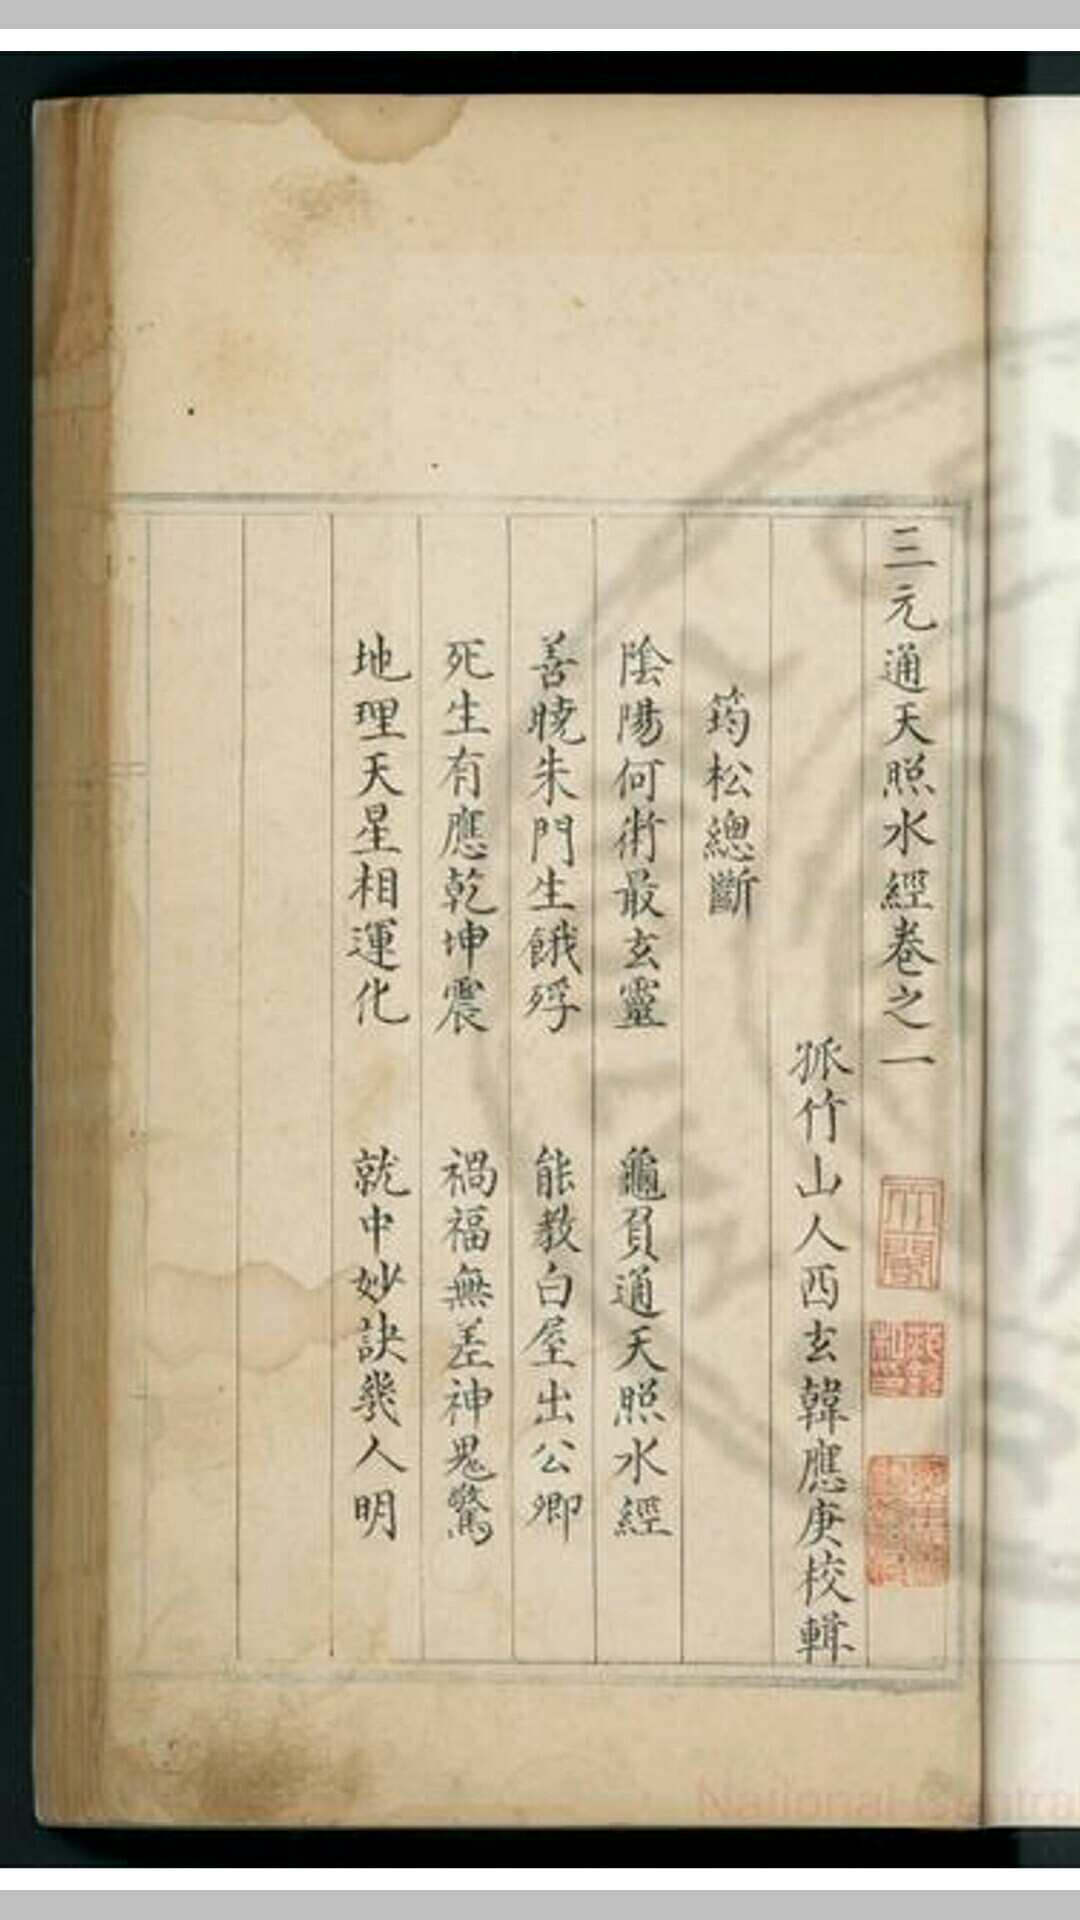 三元通天照水經卷之一
孤竹山人西玄韓應庚校輯
筠松總斷
陰陽何術最玄靈 龜負通天照水經
善曉朱門生餓殍 能教白屋出公卿
死生有應乾坤震 禍福無差神鬼驚
地理天星相運化 就中妙訣幾人明
National Centra